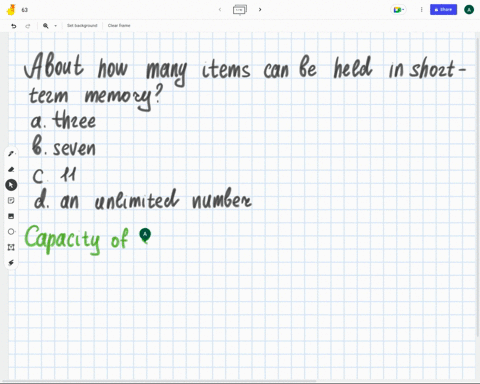 63
Set background
Clear frame
Share
A
About how many items can be held in short-
term memory?
a. three
b. seven
c 11
d. an unlimited number
Capacity of
A